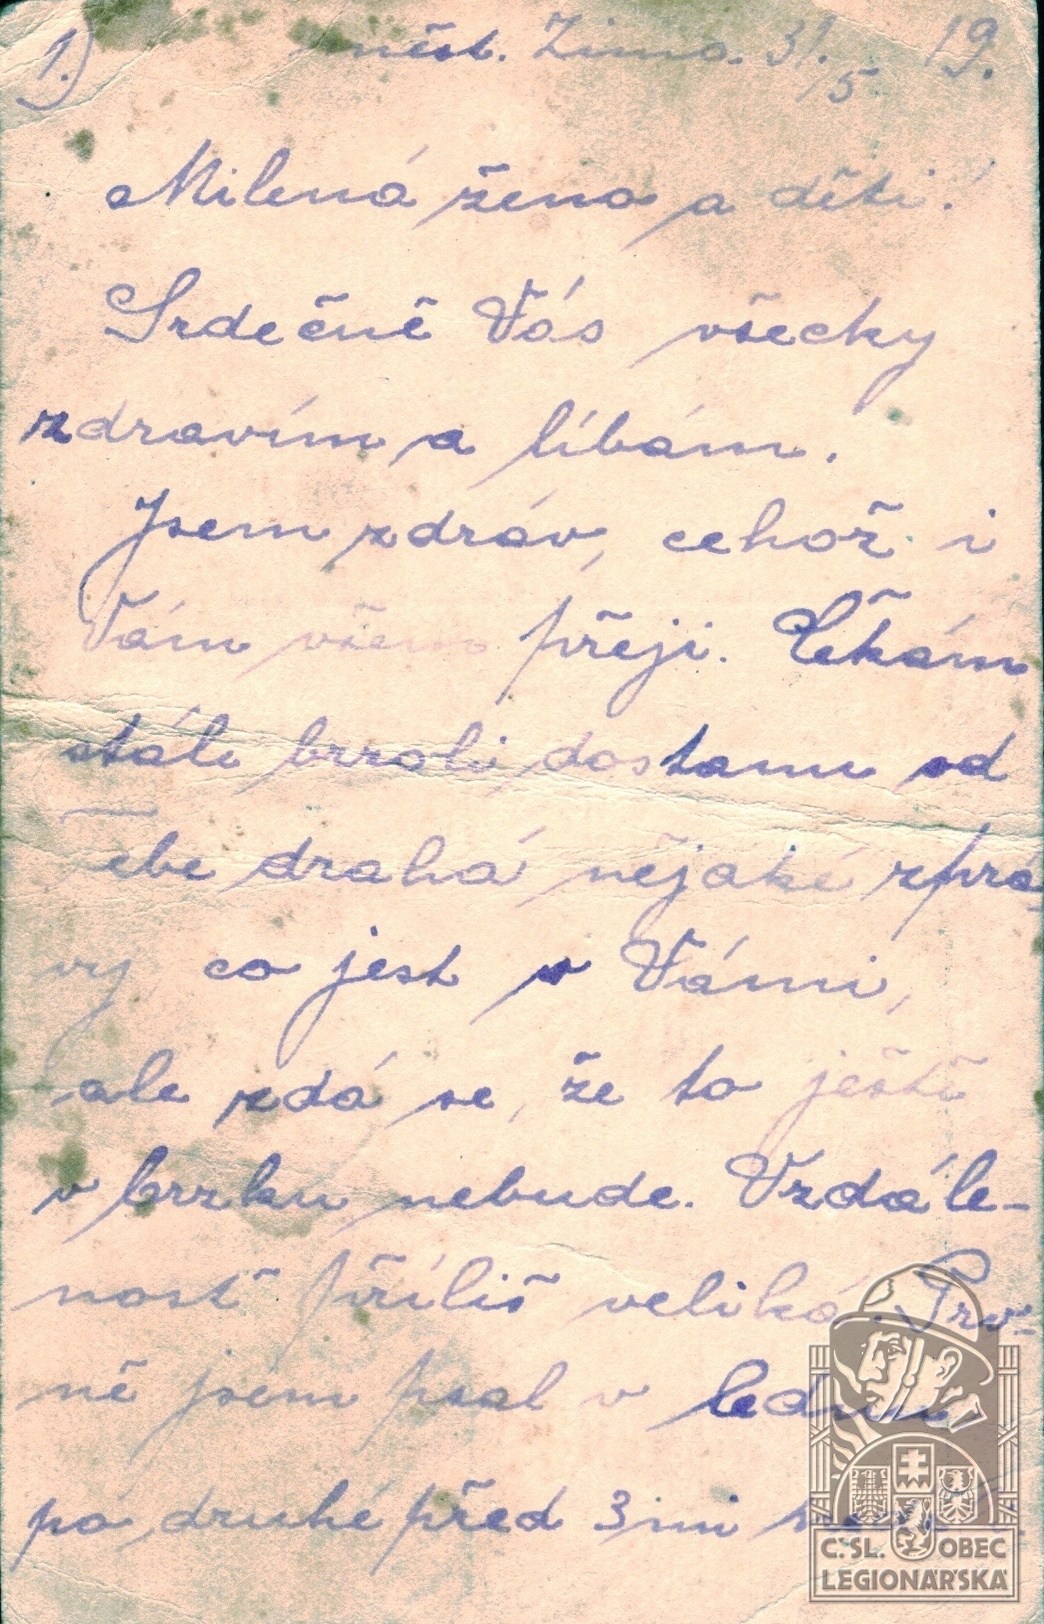 1.) měst. Zima. 31./5 19.
Milená ženo a děti!
Srdečně Vás všecky
zdravím a líbám.
Jsem zdráv, cehož i
Vám všem přeji. Čekám
stále brzoli dostanu od
Tebe drahá nějaké zprá-
vy co jest s Vámi,
ale zdá se, že to ještě
v brzku nebude. Vzdále-
nost příliš veliká. Prv-
ně jsem psal v lednu
po druhé před 3mi
Č. SL. OBEC
LEGIONÁŘSKÁ